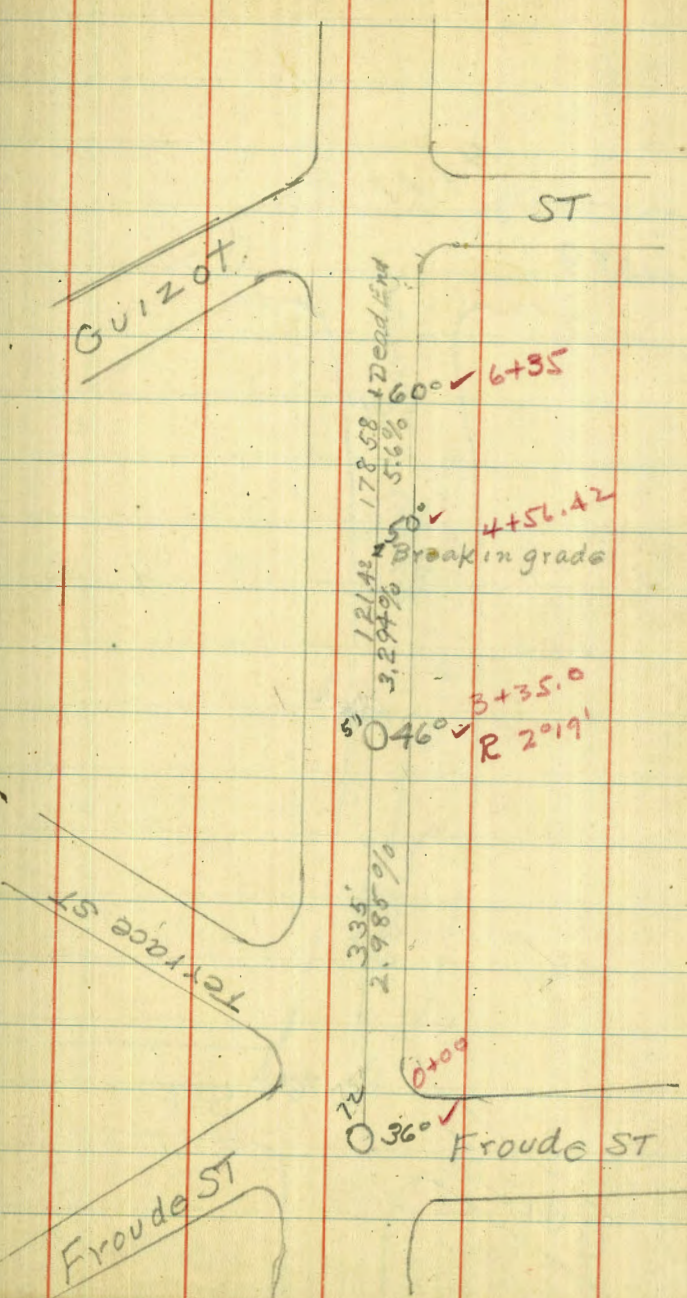 ST
Guizot
Dead End
60° ✓ 6+35
178.58
5.6%
50° ✓ 4+56.42
Break in grade
121.42
3.294%
3+35.0
51 46° ✓ R 2°19'
335'
2.985%
Terrace ST
0+00
72
36° ✓ Froude ST
Froude ST